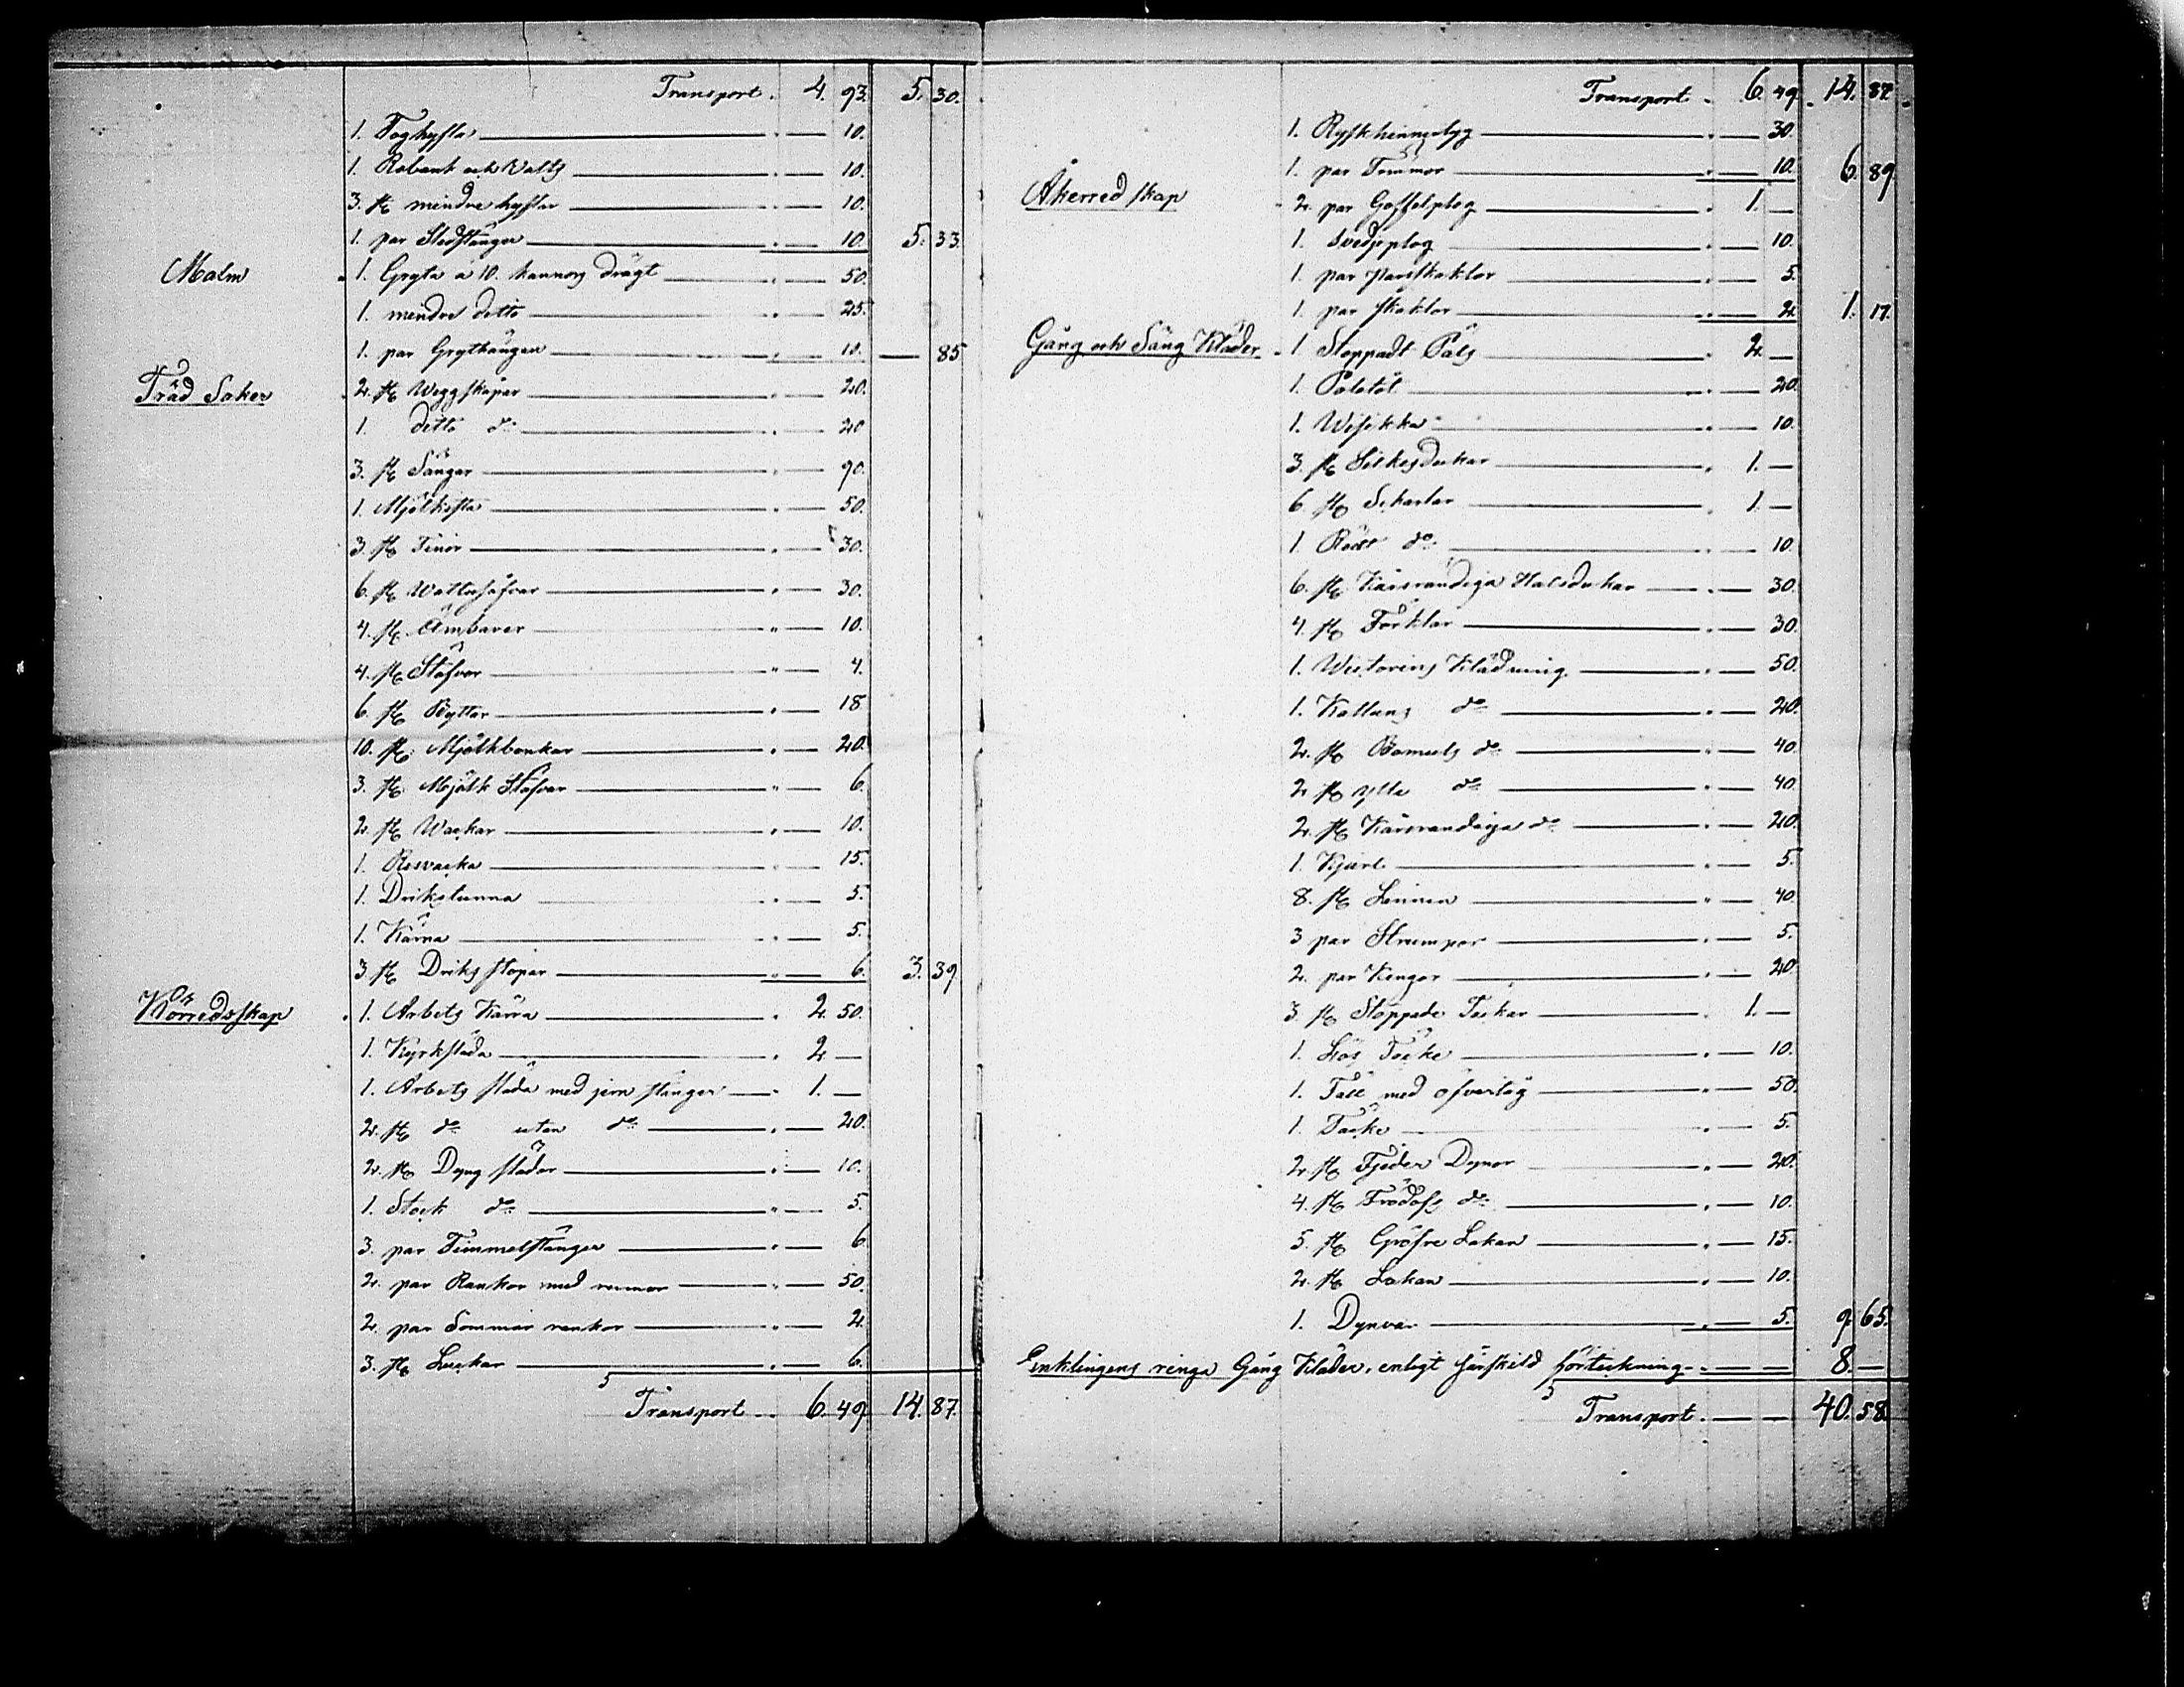 Transport. 4. 93. 5. 30.
1. Foghyfla 10.
1. Rabank och Valts 10.
3. st mindre hyflar 10.
1. par Stedstänger 10. 5. 33.
Malm 1. Gryta a 10. kannors drägt 50.
1. mindre ditto 25.
1. par Grythängen 10. — 85
Träd Saker 2. st Wäggskåpar 20.
1. ditto do 20
3. st Sängar 90.
1. Mjölkista 50.
3. st Tinor 30.
6. st Wattusåfvar 30.
4. st Ämbarer 10.
4. st Stäfvor 4.
6. st Byttor 18
10. st Mjölkbunkar 20.
3. st Mjölk Stäfvor 6.
2. st Wackar 10.
1. Resvacka 15.
1. Drikstunna 5.
1. Kärna 5.
3 st Driks stopar 6. 3. 39.
Körredsskap 1. Arbets Kärra 2. 50.
1. Kyrksläda 2 —
1. Arbets släda med jern stänger 1. —
2. st do utan do 20.
2. st Dyng slädor 10.
1. Stock do 5.
3. par Timmelstänger 6
2. par Rankor med remmar 50.
2. par Sommar rankor 2.
3. st Luckar 6.
Transport 6. 49. 14. 87.
Transport. 6. 49. 14. 87.
1. Ryskhinnstyg 30.
1. par Tömmor 10. 6. 89
Åkerredskap 2. par Gaffelplog 1. —
1. Svedjeplog 10.
1. par parskaklor 5.
1. par skaklor 2. 1. 17.
Gång och Säng Kläder 1 Stoppadt Päls 2. —
1. Paletot 20.
1. Wisikka 10.
3. st Silkesdukar 1. —
6. st Scharlar 1. —
1. Rödt do 10.
6. st Kärsrandiga Halsdukar 30.
4. st Förklär 30.
1. Wictorins Klädning 50.
1. Kattuns do 20.
2. st Bomuls do 40.
2 st ylle do 40.
2. st Kärsrandiga do 20.
1. Kjurt 5.
8. st Linnen 40
3 par Strumpor 5.
2. par Kengor 20.
3. st Stoppade Täckar 1. —
1. Lös Täcke 10.
1. Fäll med öfvertäg 50.
1. Täcke 5.
2. st Fjäder Dynor 20.
4. st Frödofs do 10.
5. st Gröfre Lakan 15.
2. st Lakan 10.
1. Dynvar 5. 9. 65.
Enklingens ringa Gång Kläder, enligt särskild förtekning 8. —
Transport. 40. 58.